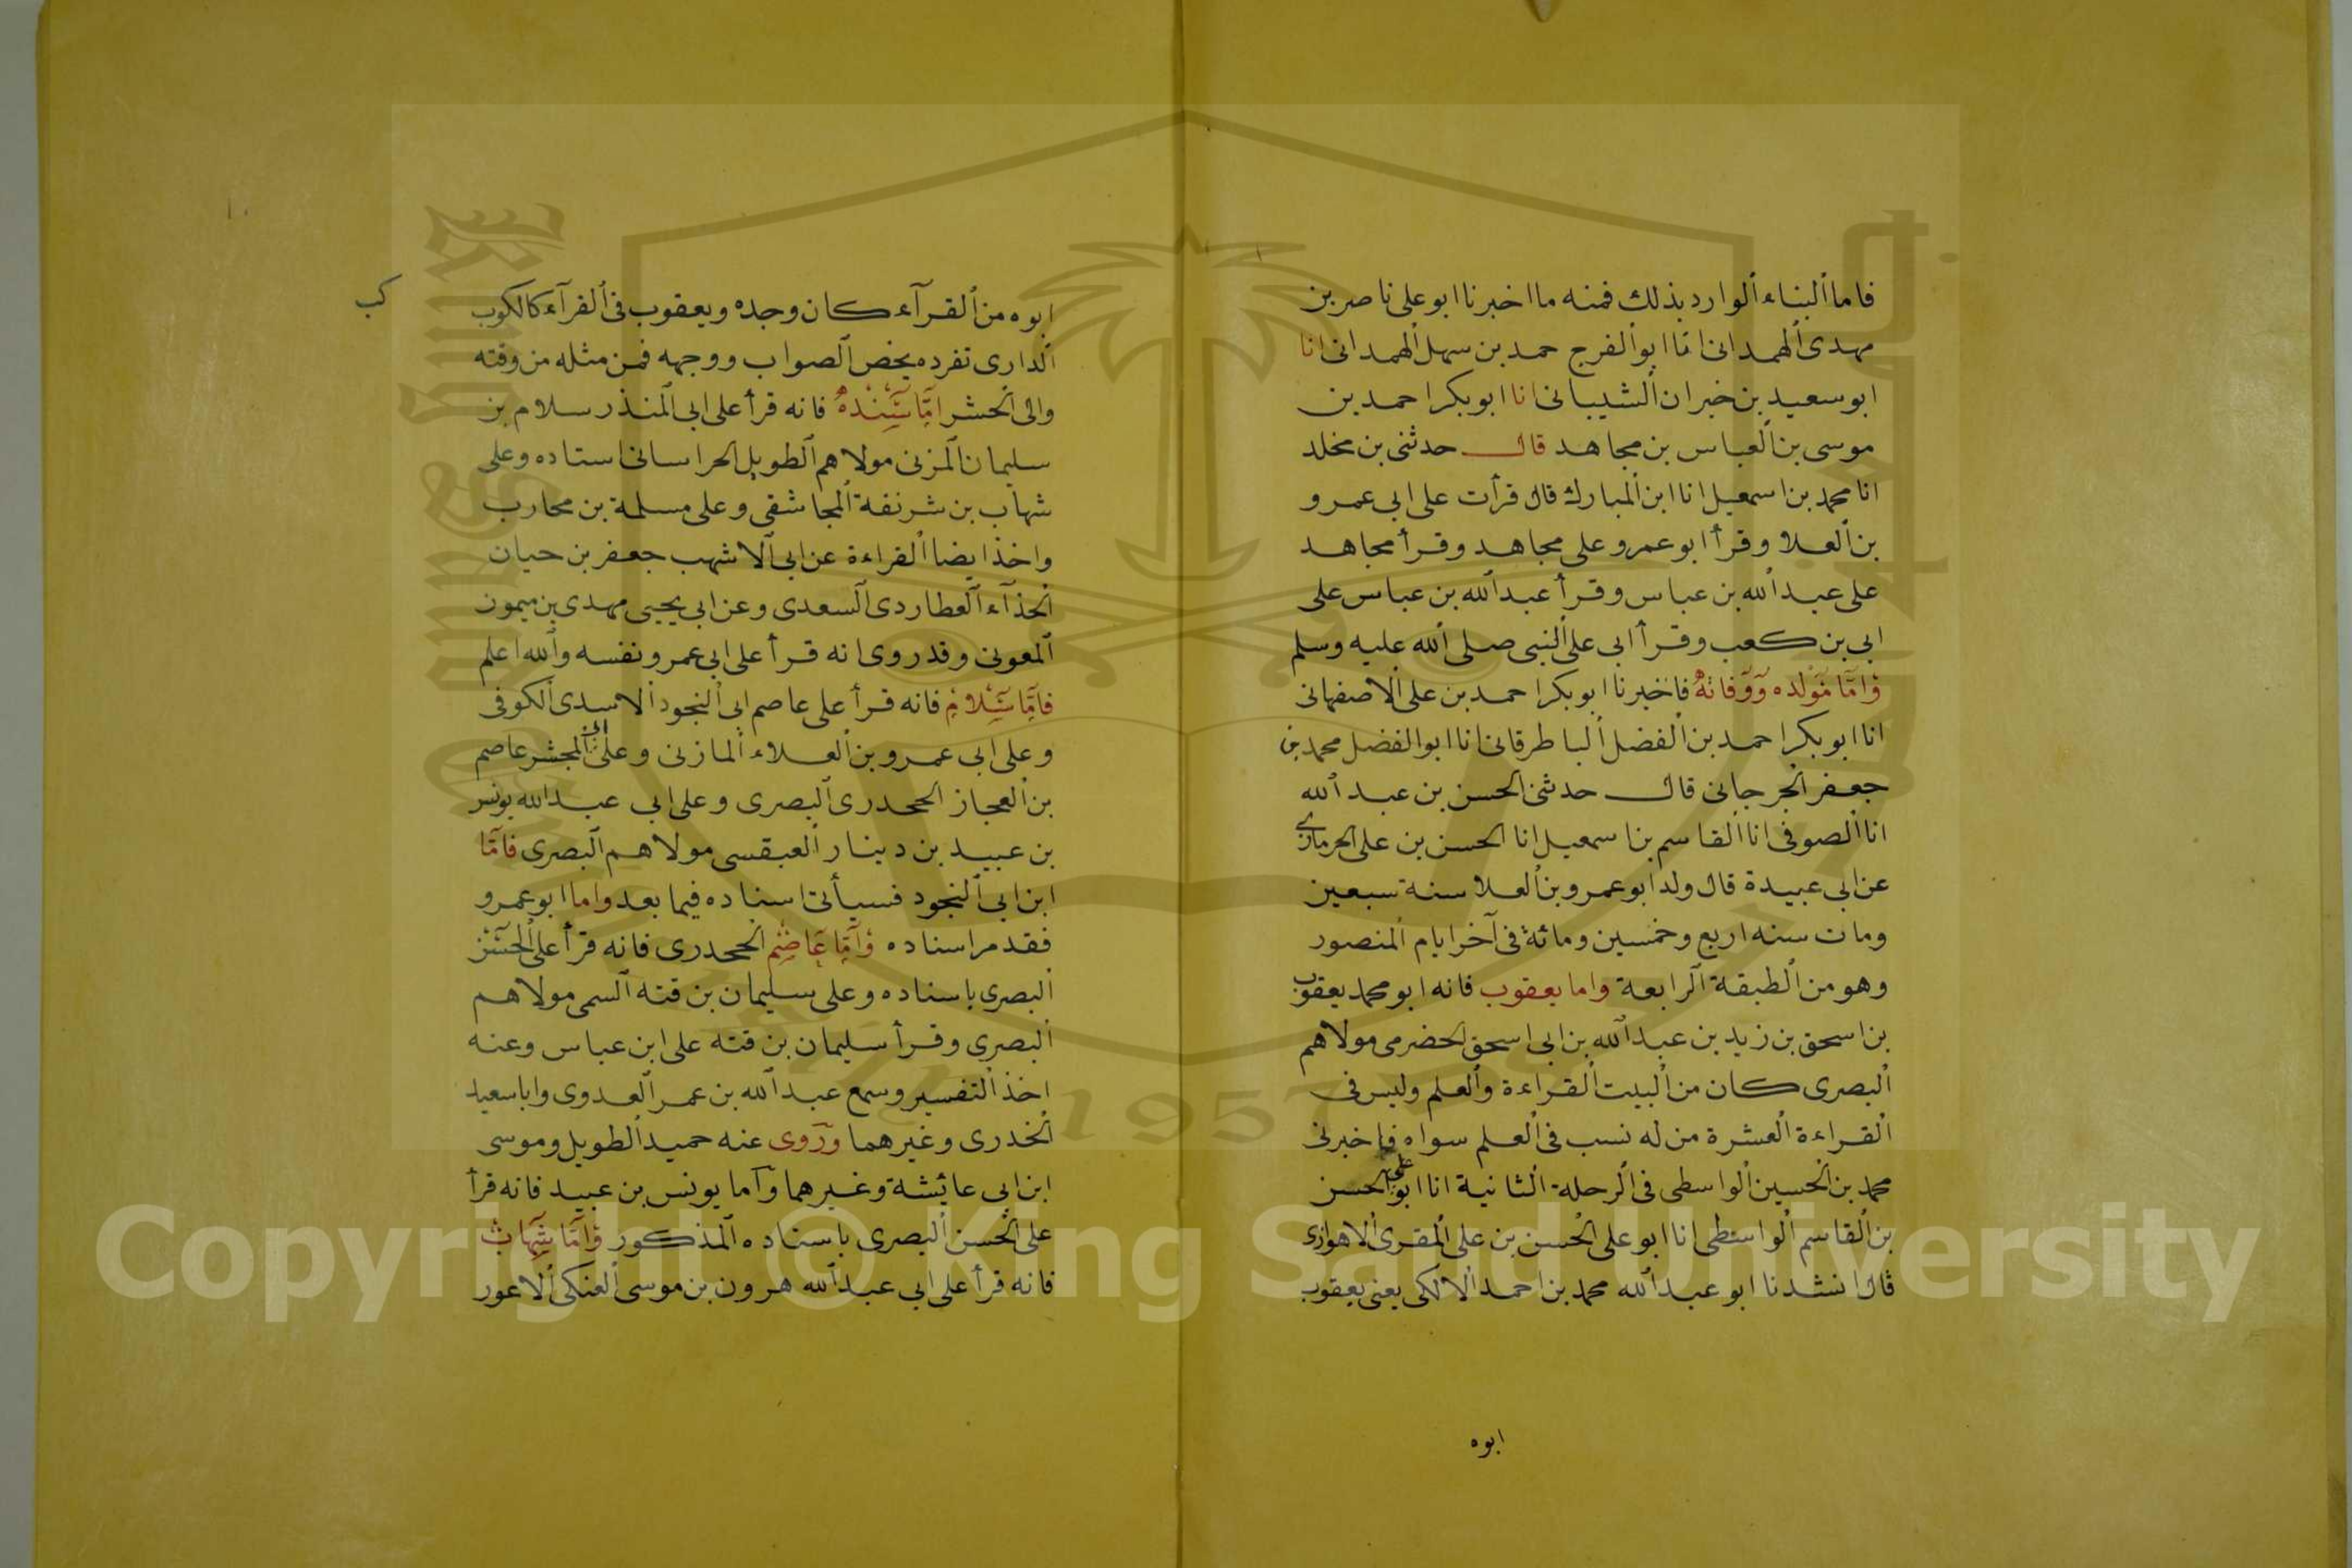 فاما البناء الوارد بذلك فمنه ما اخبرنا ابو على ناصر بن
مهدى الهمدانى انا ابو الفرج حمد بن سهل الهمدانى انا
ابو سعيد بن خيران الشيبانى انا ابو بكر احمد بن
موسى بن العباس بن مجاهد قال حدثنى بن مخلد
انا محمد بن اسمعيل انا ابن المبارك قال قرأت على ابى عمرو
بن العلا وقرأ ابو عمرو على مجاهد وقرأ مجاهد
على عبد الله بن عباس وقرأ عبد الله بن عباس على
ابى بن كعب وقرأ ابى على النبى صلى الله عليه وسلم
وامّا مولده ووفاته فاخبرنا ابو بكر احمد بن على الاصفهانى
انا ابو بكر احمد بن الفضل الباطرقانى انا ابو الفضل محمد بن
جعفر الجرجانى قال حدثنى الحسن بن عبد الله
انا الصوفى انا القاسم بن اسمعيل انا الحسن بن على الحرمازى
عن ابى عبيدة قال ولد ابو عمرو بن العلا سنة سبعين
ومات سنه اربع وخمسين ومائة فى آخر ايام المنصور
وهو من الطبقة الرابعة واما يعقوب فانه ابو محمد يعقوب
بن اسحق بن زيد بن عبد الله بن ابى اسحق الحضرمى مولاهم
البصرى كان من البيت القراءة والعلم وليس فى
القراءة العشرة من له نسب فى العلم سواه فاخبرنى
محمد بن الحسين الواسطى فى الرحلة الثانية انا ابو على الحسن
بن القاسم الواسطى انا ابو على الحسن بن على المقرى الاهوازى
قال انشدنا ابو عبد الله محمد بن احمد الالكى يعنى يعقوب
ابوه
كب
ابوه من القرآء كان وجده ويعقوب فى القرآء كالكوب
الدارى تفرده يخص الصواب ووجهه فمن مثله من وقته
والى الحشر امّا سنده فانه قرأ على ابى المنذر سلام بن
سليمان المزنى مولاهم الطويل الخراسانى استاده وعلى
شهاب بن شرنفة المجاشقى وعلى مسلمة بن محارب
واخذ ايضا القراءة عن ابى الاشهب جعفر بن حيان
الحذآء العطاردى السعدى وعن ابى يحيى مهدى بن ميمون
المعونى وقد روى انه قرأ على ابى عمرو نفسه والله اعلم
فامّا سلام فانه قرأ على عاصم ابى النجود الاسدى الكوفى
وعلى ابى عمرو بن العلاء المازنى وعلى ابى المجشر عاصم
بن العجاز الجحدرى البصرى وعلى ابى عبد الله يونس
بن عبيد بن دينار العبقسى مولاهم البصرى فامّا
ابن ابى النجود فسيأتى اسناده فيما بعد واما ابو عمرو
فقد مر اسناده وامّا عاصم الجحدرى فانه قرأ على الحسن
البصرى باسناده وعلى سليمان بن قته السمى مولاهم
البصرى وقرأ سليمان بن قته على ابن عباس وعنه
اخذ التفسير وسمع عبد الله بن عمر العدوى وابا سعيد
الخدرى وغيرهما وروى عنه حميد الطويل وموسى
ابن ابى عائشة وغيرهما وآما يونس بن عبيد فانه قرأ
على الحسن البصرى باسناده المذكور وامّا شهاب
فانه قرأ على ابى عبد الله هرون بن موسى العتكى الاعور
Copyright © King Saud University
1957